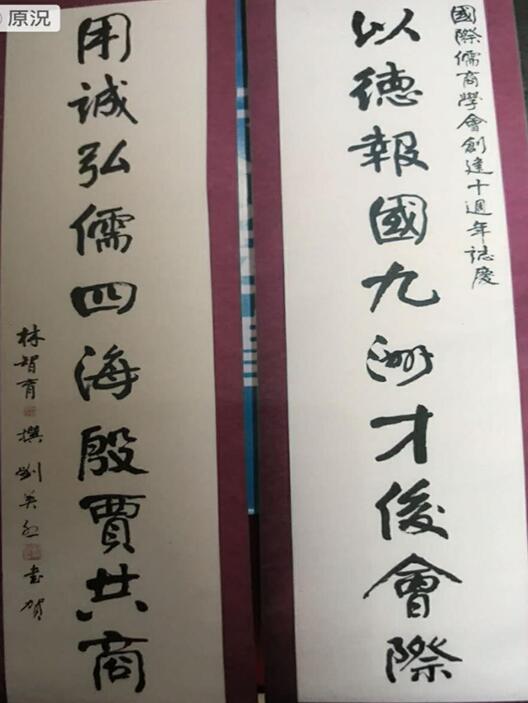 原況
國際儒商學會創達十週年誌慶
以德報國九洲才俊會際
用誠弘儒四海殷賈共商
林智育 撰 劉英 書賀